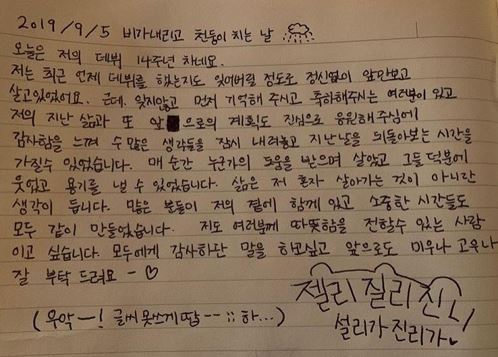 2019/9/5 비가내리고 천둥이 치는 날
오늘은 저의 데뷔 14주년 차네요.
저는 최근 언제 데뷔를 했는지도 잊어버릴 정도로 정신없이 앞만보고
살고있었어요. 근데, 잊지않고 먼저 기억해 주시고 축하해주시는 여러분이 있고
저의 지난 삶과 또 앞으로의 계획도 진심으로 응원해 주심에
감사함을 느껴 수 많은 생각들을 잠시 내려놓고 지난날을 뒤돌아보는 시간을
가질수 있었습니다. 매 순간 누군가의 도움을 받으며 살았고 그들 덕분에
웃었고 용기를 낼 수 있었습니다. 삶은 저 혼자 살아가는 것이 아니란
생각이 듭니다. 많은 분들이 저의 곁에 함께 있고 소중한 시간들도
모두 같이 만들었습니다. 저도 여러분께 따뜻함을 전할수 있는 사람
이고 싶습니다. 모두에게 감사하단 말을 하고싶고 앞으로도 미우나 고우나
잘 부탁 드려요 - ♡
(우악-! 글씨 못쓰게땁--;; 하...)
젤리 질리 진니
설리가 진리가♥